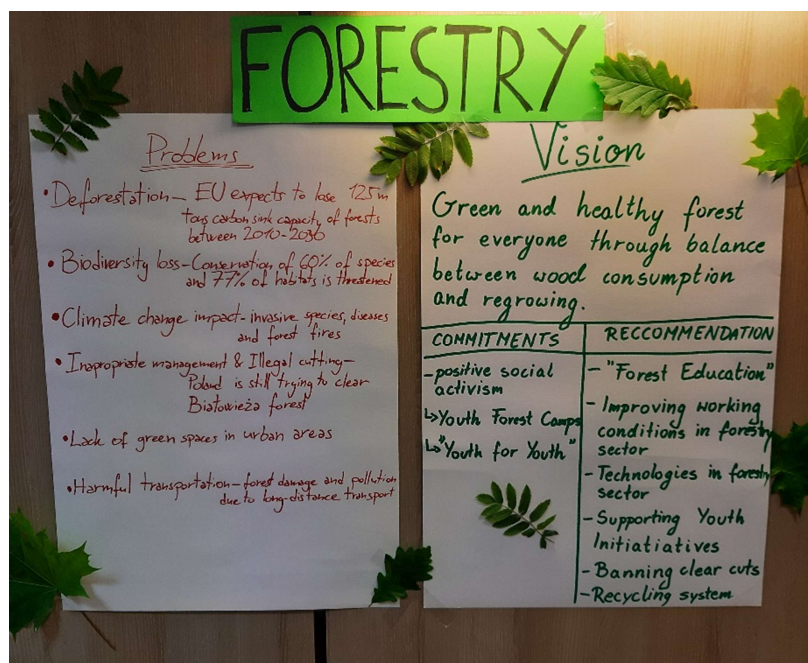 FORESTRY
Problems
• Deforestation – EU expects to lose 125m
tons carbon sink capacity of forests
between 2010-2030
• Biodiversity loss – Conservation of 60% of species
and 77% of habitats is threatened
• Climate change impact – invasive species, diseases
and forest fires
• Inapropriate management & Illegal cutting –
Poland is still trying to clear
Białowieża forest
• Lack of green spaces in urban areas
• Harmful transportation – forest damage and pollution
due to long-distance transport
Vision
Green and healthy forest
for everyone through balance
between wood consumption
and regrowing.
COMMITMENTS
– positive social
activism
↳ Youth Forest Camps
↳ "Youth for Youth"
RECCOMMENDATION
– "Forest Education"
– Improving working
conditions in forestry
sector
– Technologies in forestry
sector
– Supporting Youth
Initiatiatives
– Banning clear cuts
– Recycling system